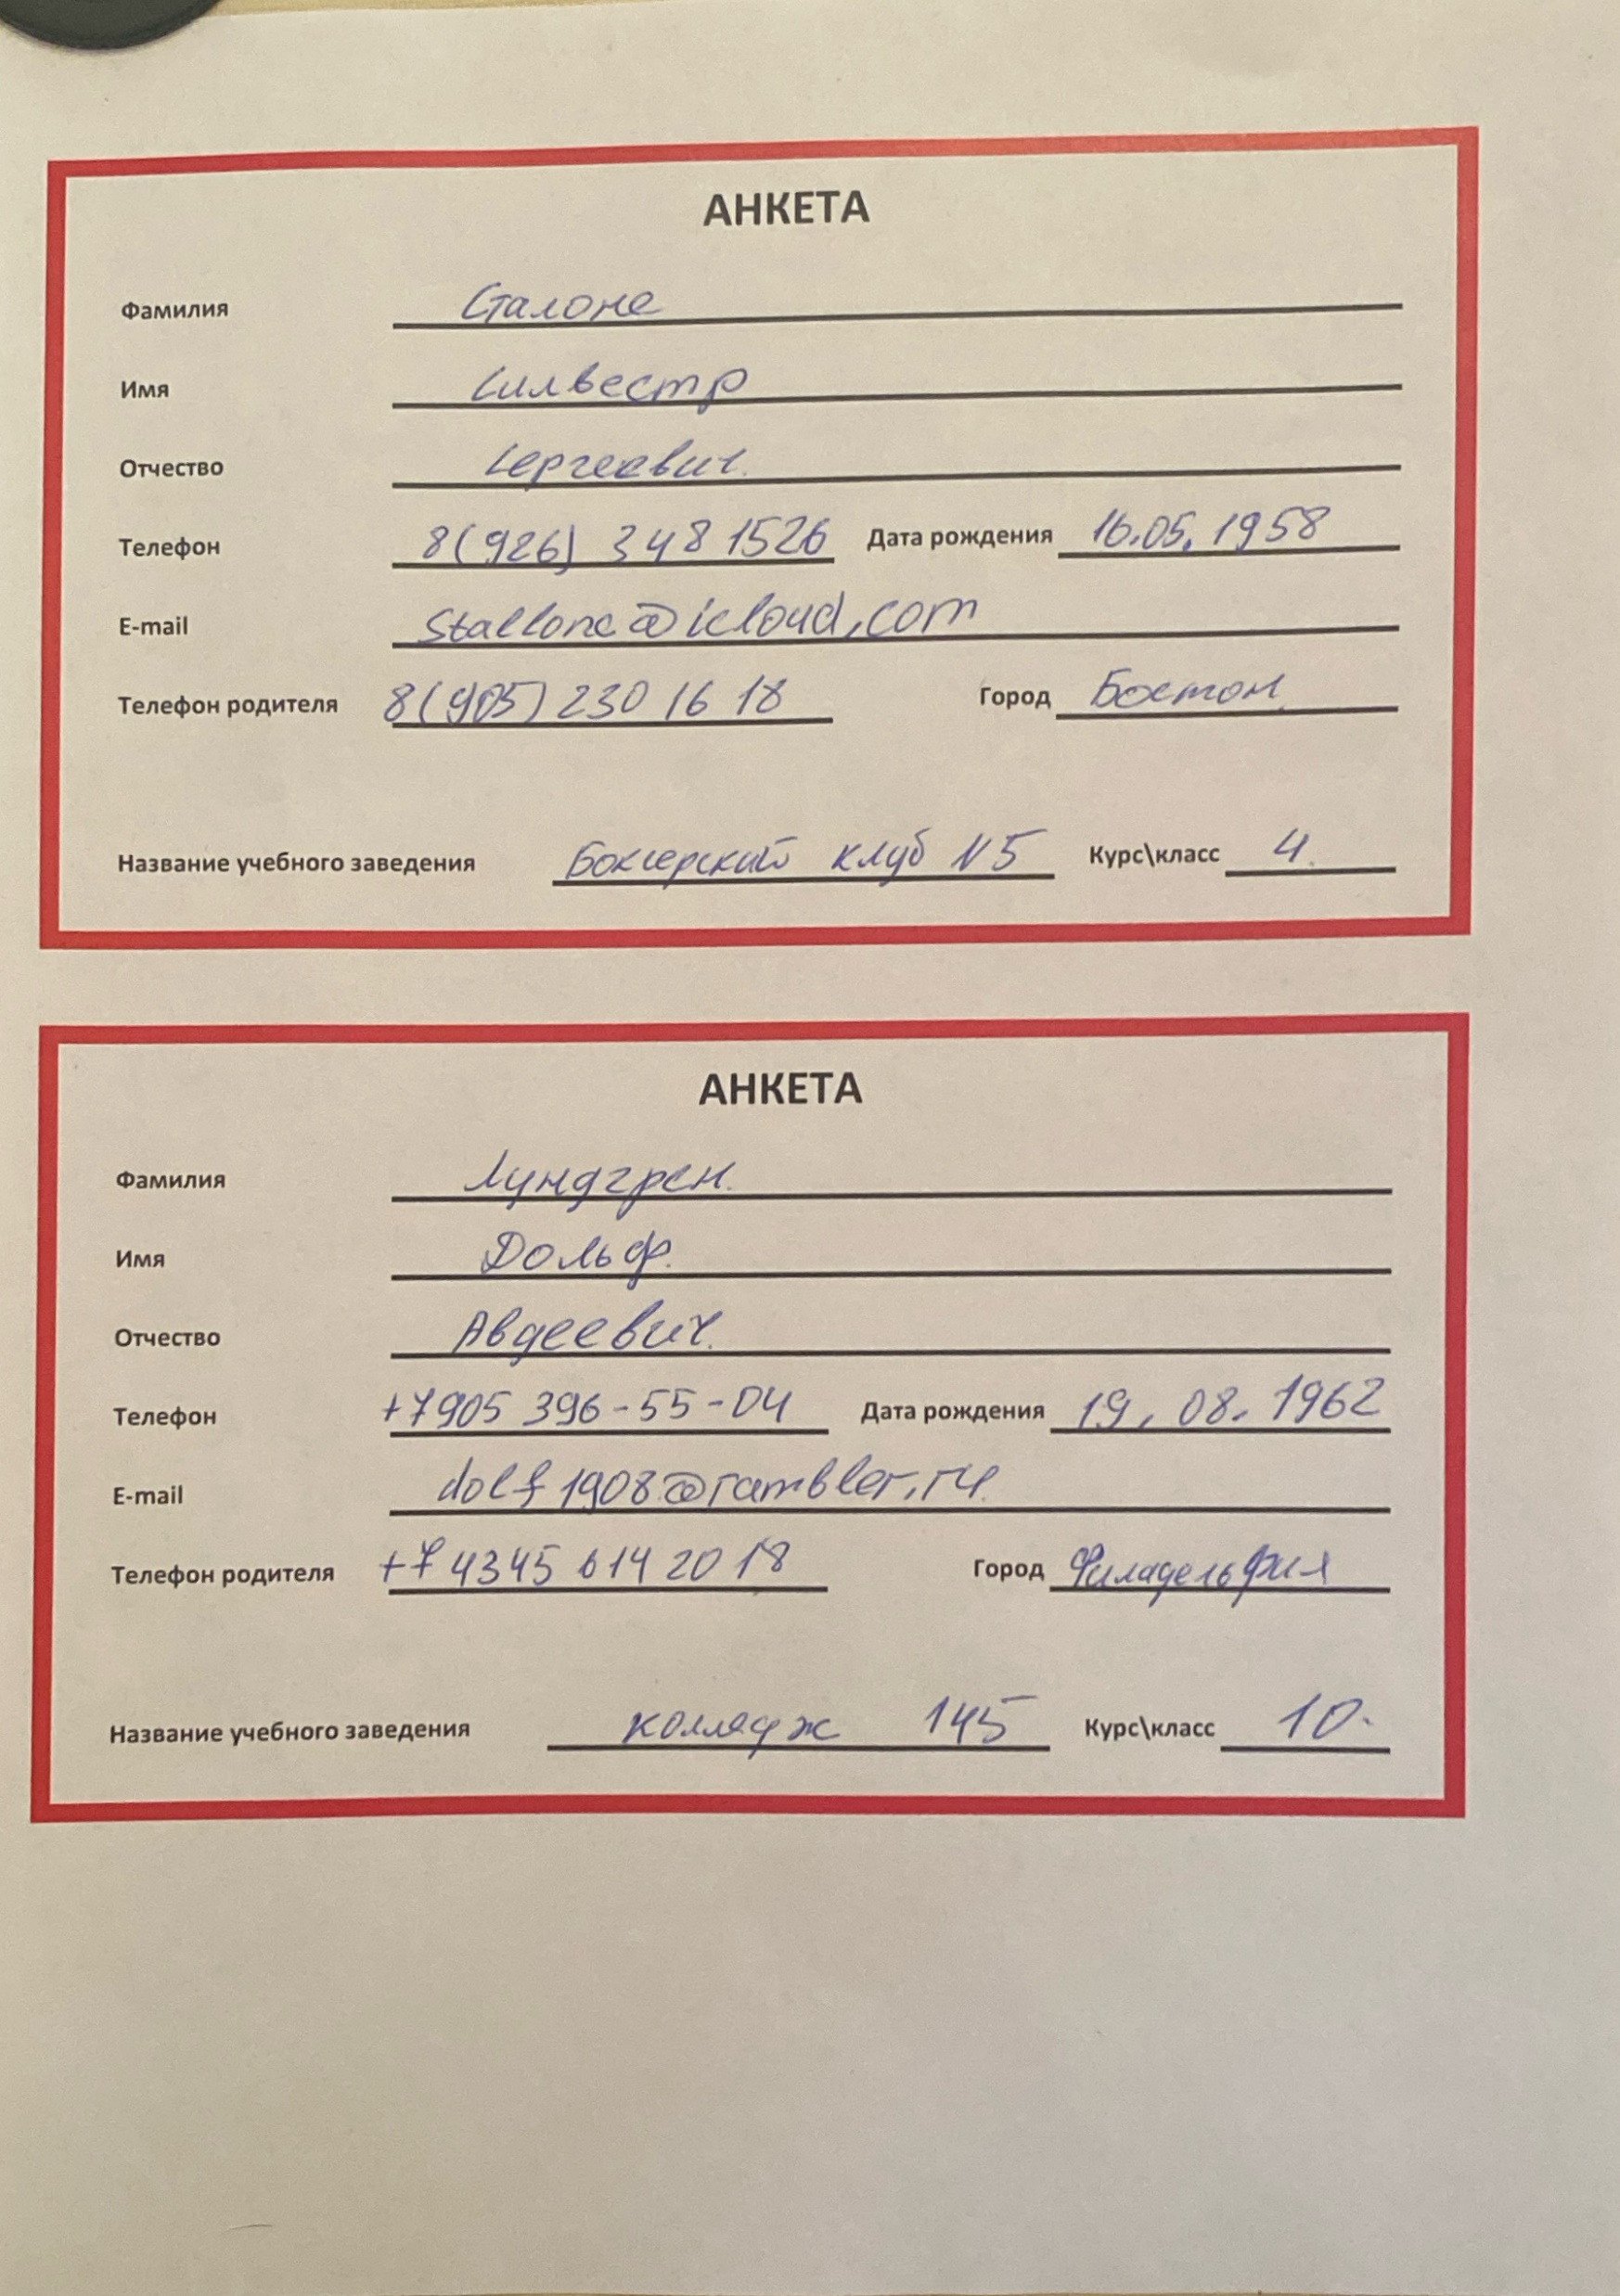 АНКЕТА
Фамилия Сталоне
Имя Силвестр
Отчество Сергеевич.
Телефон 8(926) 348 1526 Дата рождения 16.05.1958
E-mail Stallone@icloud.com
Телефон родителя 8(905) 230 16 18 Город Бостон
Название учебного заведения Боксерский клуб N5 Курс\класс 4.
АНКЕТА
Фамилия Лундгрен.
Имя Дольф.
Отчество Авдеевич.
Телефон +7905 396-55-04 Дата рождения 19.08.1962
E-mail dolf1908@rambler.ru.
Телефон родителя +7 4345 614 20 18 Город Филадельфия
Название учебного заведения колледж 145 Курс\класс 10.